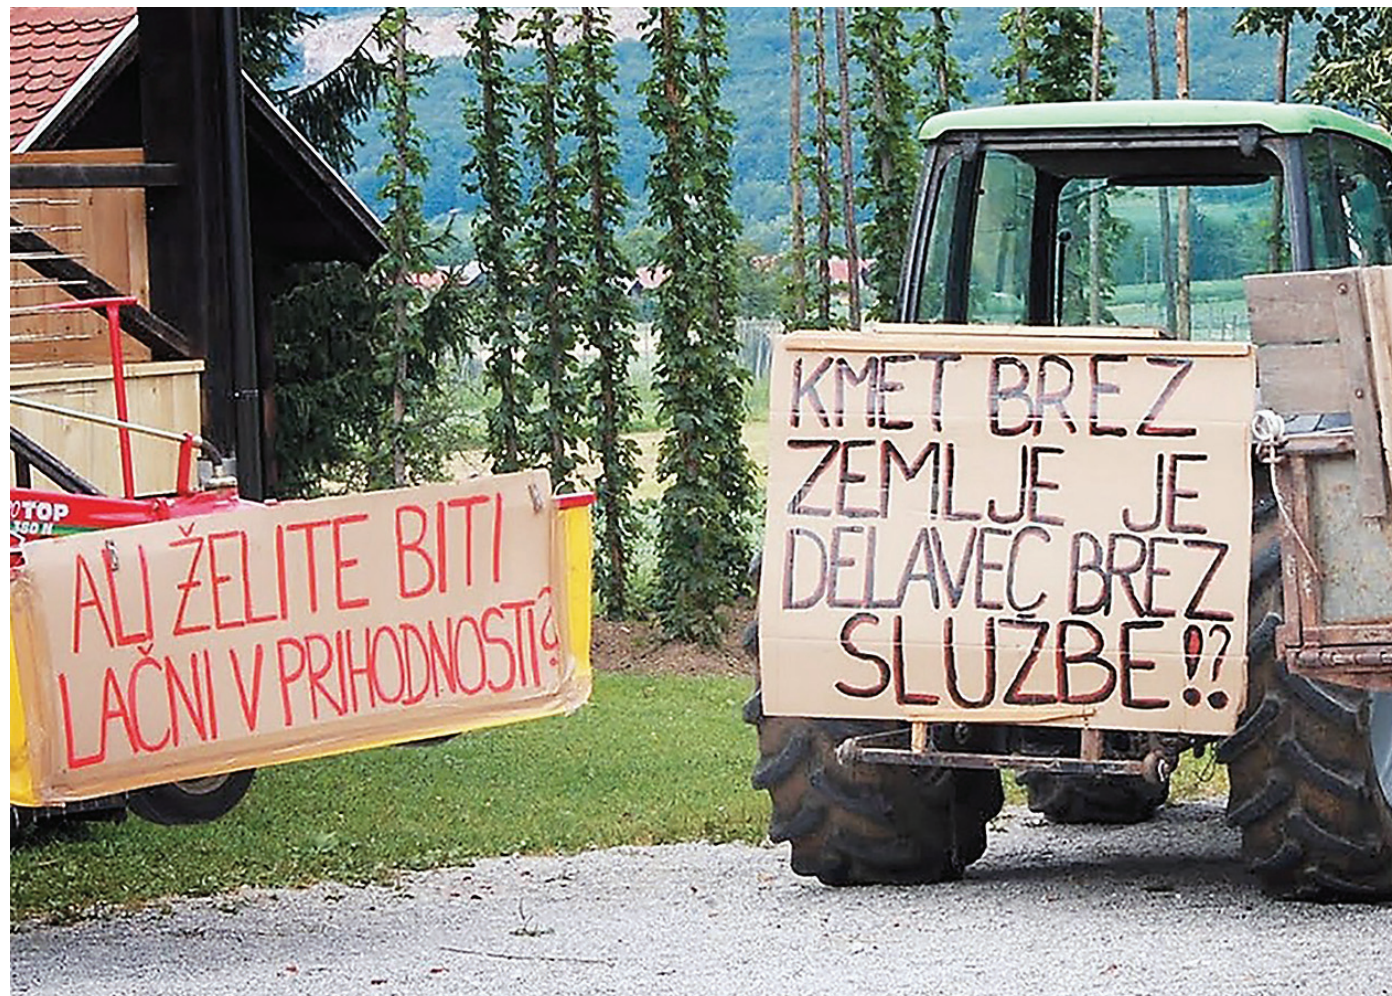 TOP
380 N
ALI ŽELITE BITI
LAČNI V PRIHODNOSTI?
KMET BREZ
ZEMLJE JE
DELAVEC BREZ
SLUŽBE!?